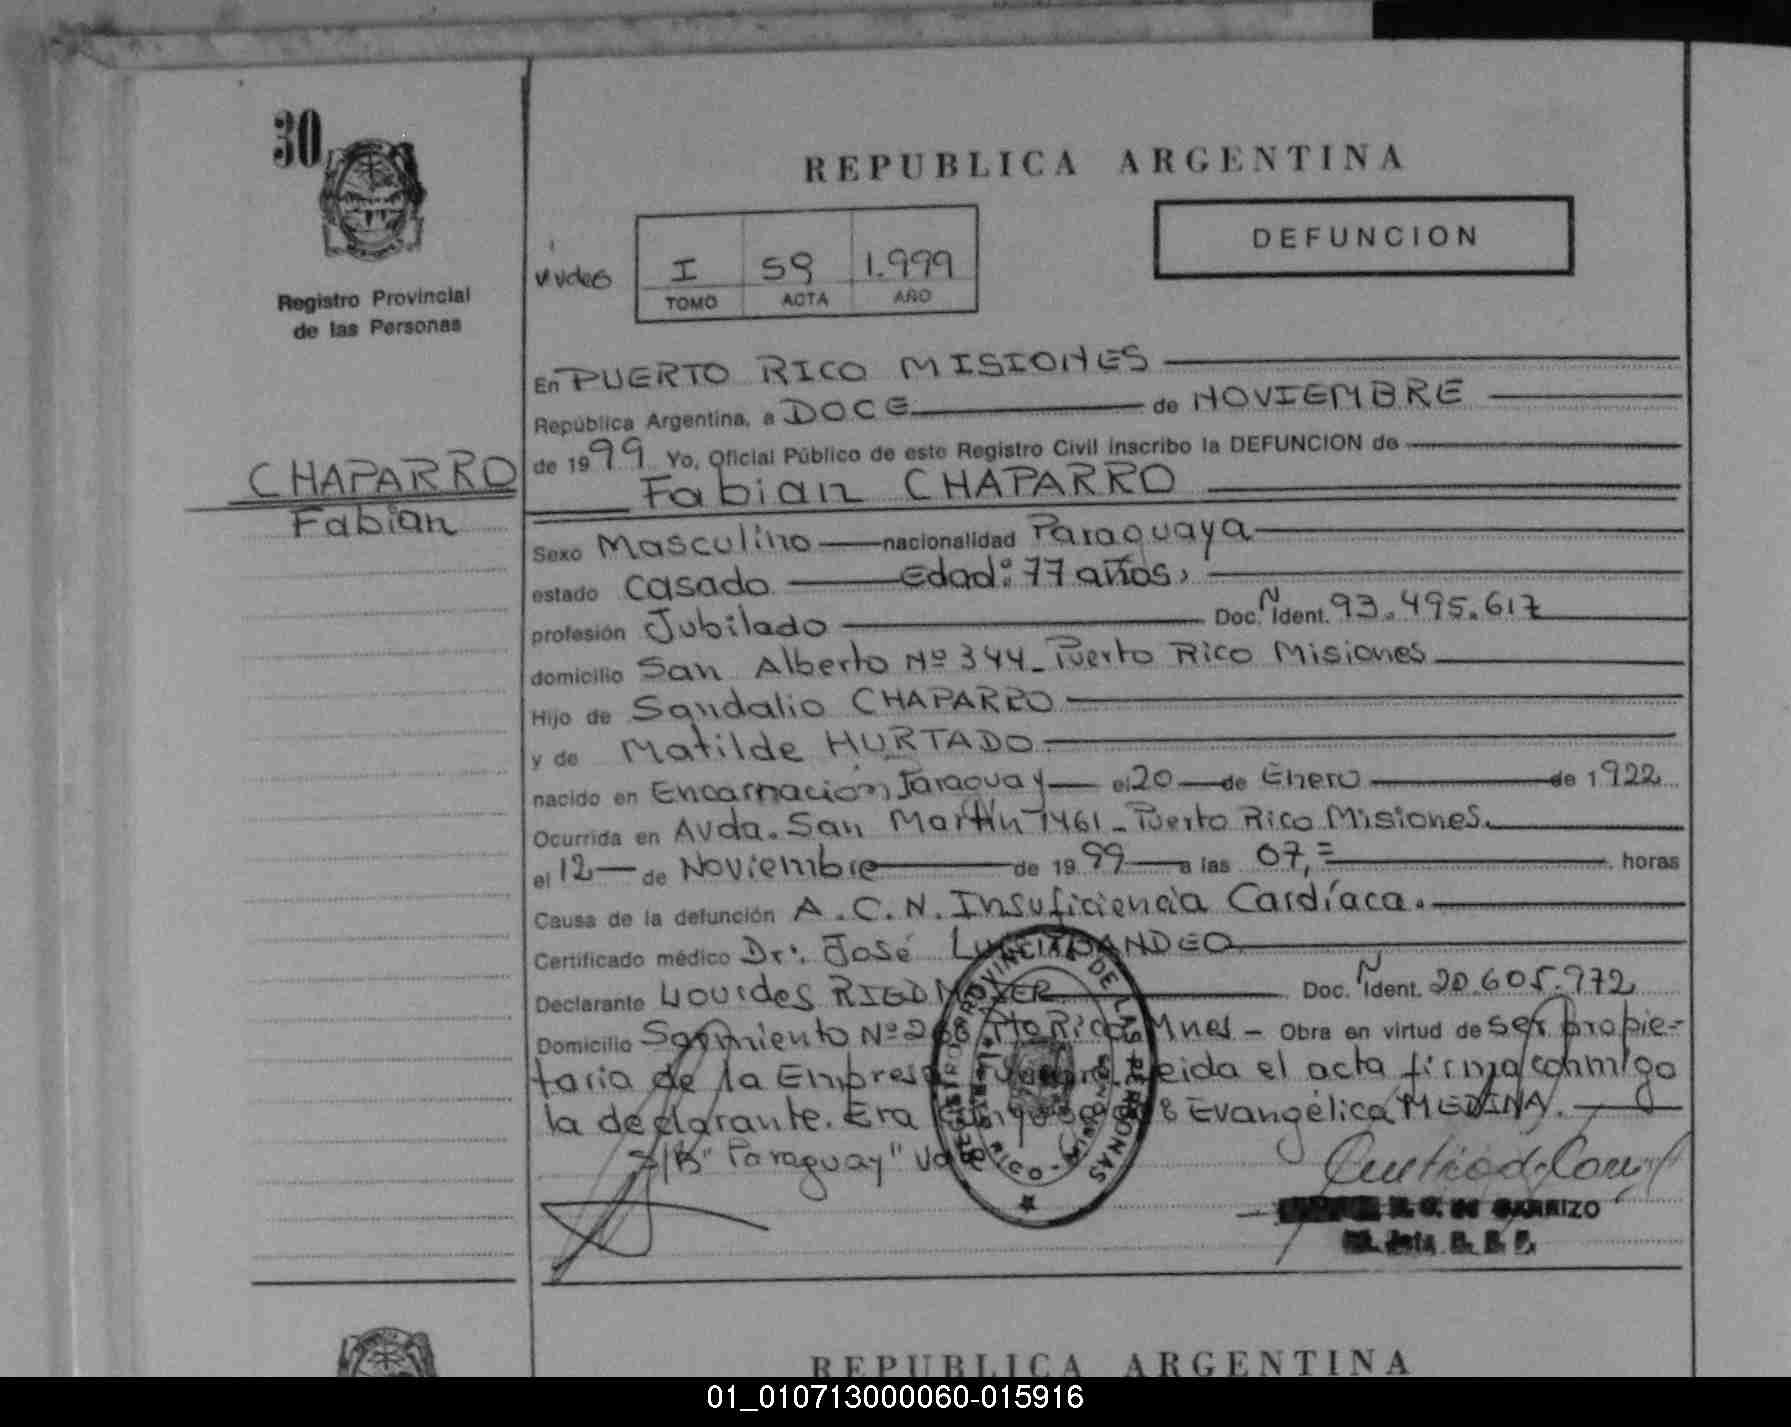 30
Registro Provincial
de las Personas
CHAPARRO
Fabian
REPUBLICA ARGENTINA
I 59 1.999
TOMO ACTA AÑO
DEFUNCION
En PUERTO RICO MISIONES
República Argentina, a DOCE de NOVIEMBRE
de 1999 Yo, Oficial Público de este Registro Civil inscribo la DEFUNCION de
Fabian CHAPARRO
Sexo Masculino nacionalidad Paraguaya
estado casado Edad: 77 años,
profesión Jubilado Doc. N Ident. 93.495.617
domicilio San Alberto Nº 344_ Puerto Rico Misiones
Hijo de Sandalio CHAPARRO
y de Matilde HURTADO
nacido en Encarnación Paraguay el 20 de Enero de 1922
Ocurrida en Avda. San Martín 1461_ Puerto Rico Misiones.
el 12 de Noviembre de 1999 a las 07,= horas
Causa de la defunción A.C.N. Insuficiencia Cardíaca.
Certificado médico Dr: José
Declarante Lourdes RIEDMAIER Doc. N Ident. 20.605.972
Domicilio Sarmiento Nº 268 Pto Rico Mnes - Obra en virtud de ser propie-
taria de la Empresa leida el acta firma conmigo
la declarante. Era Evangélica MEDINA.
S/B "Paraguay" Vale
REGISTRO PROVINCIAL DE LAS PERSONAS
REPUBLICA ARGENTINA
01_010713000060-015916